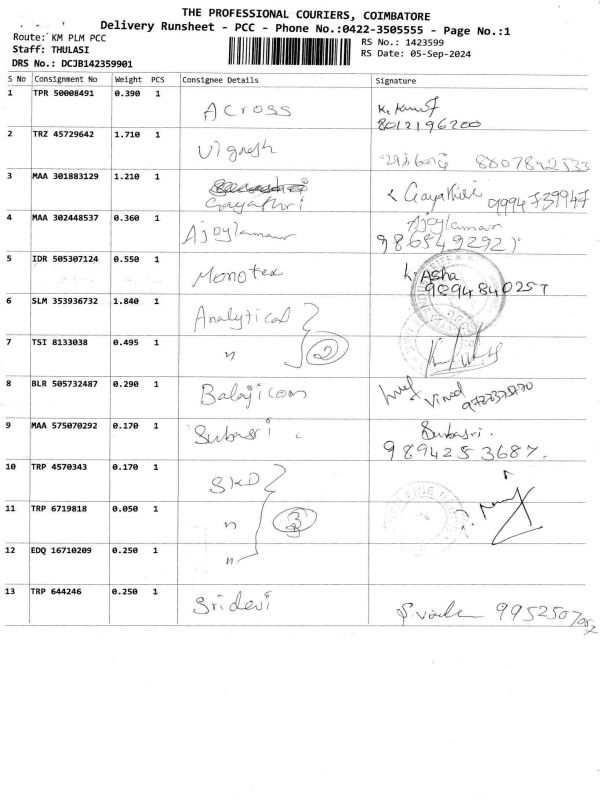 THE PROFESSIONAL COURIERS, COIMBATORE
Delivery Runsheet - PCC - Phone No.:0422-3505555 - Page No.:1
Route: KM PLM PCC
RS No.: 1423599
Staff: THULASI
RS Date: 05-Sep-2024
DRS No.: DCJB142359901
S No Consignment No Weight PCS Consignee Details Signature
1 TPR 50008491 0.390 1 Across
8012196200
2 TRZ 45729642 1.710 1 Vignesh 8807842533
3 MAA 301883129 1.210 1 Gayathri Gayathri 9994739947
4 MAA 302448537 0.360 1
5 IDR 505307124 0.550 1 Monotex Asha
9894840257
6 SLM 353936732 1.840 1 Analytical
7 TSI 8133038 0.495 1 " 2
8 BLR 505732487 0.290 1 Balajicom Vinod
9 MAA 575070292 0.170 1 Subasri Subasri.
9894253687.
10 TRP 4570343 0.170 1 SKD
11 TRP 6719818 0.050 1 " 3
12 EDQ 16710209 0.250 1 "
13 TRP 644246 0.250 1 Sridevi